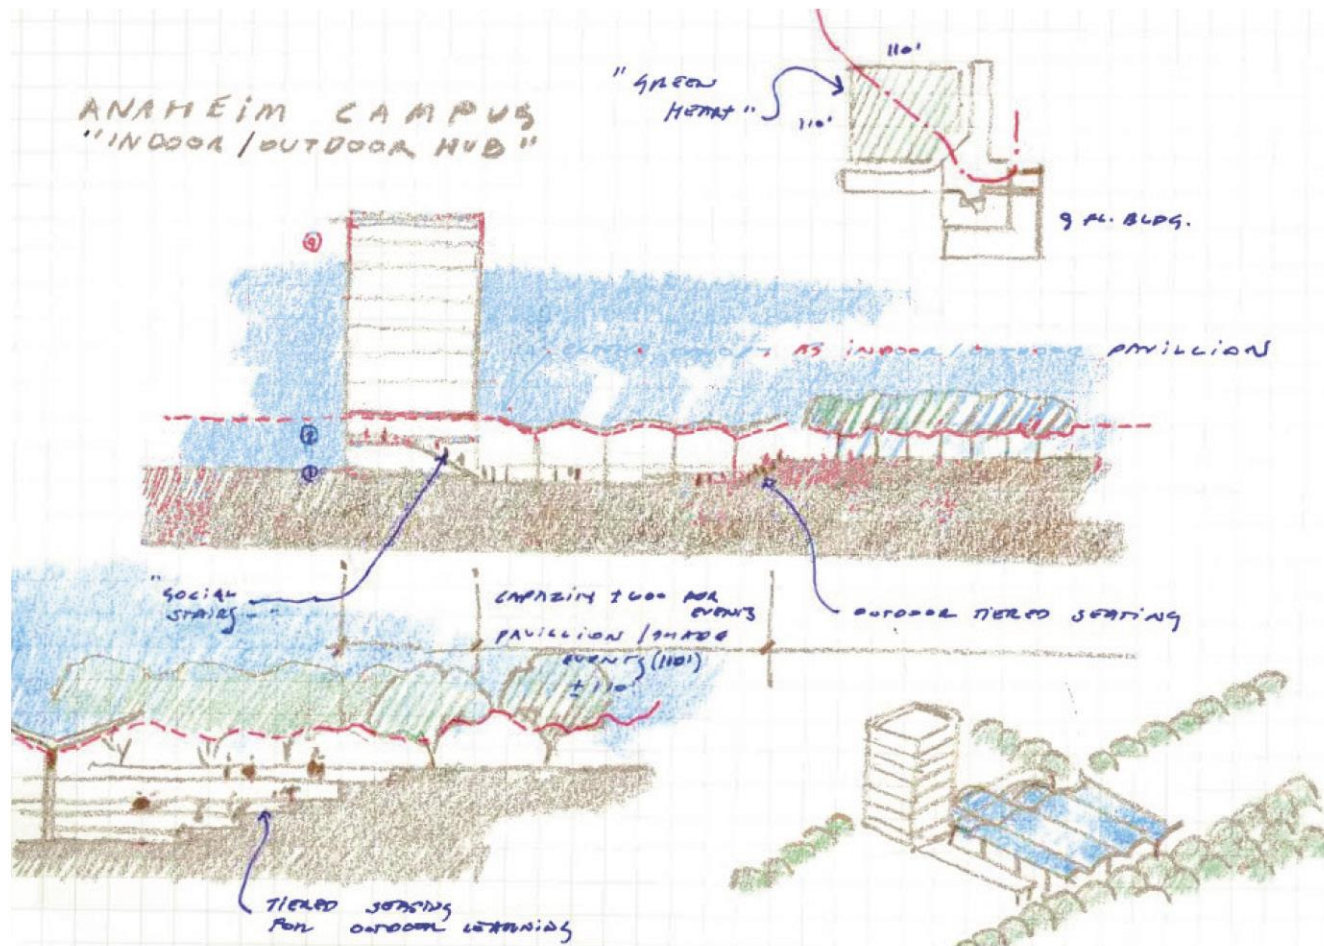 ANAHEIM CAMPUS
"INDOOR/OUTDOOR HUB"
110'
"GREEN
HEART"
110'
9 FL. BLDG.
9
CANOPY AS INDOOR/OUTDOOR PAVILLION
2
1
"SOCIAL
STAIRS"
CAPAZITY ±600 FOR
EVENTS
PAVILLION/SHADE
EVENTS (110')
±110'
OUTDOOR TIERED SEATING
TIERED SEATING
FOR OUTDOOR LEARNING